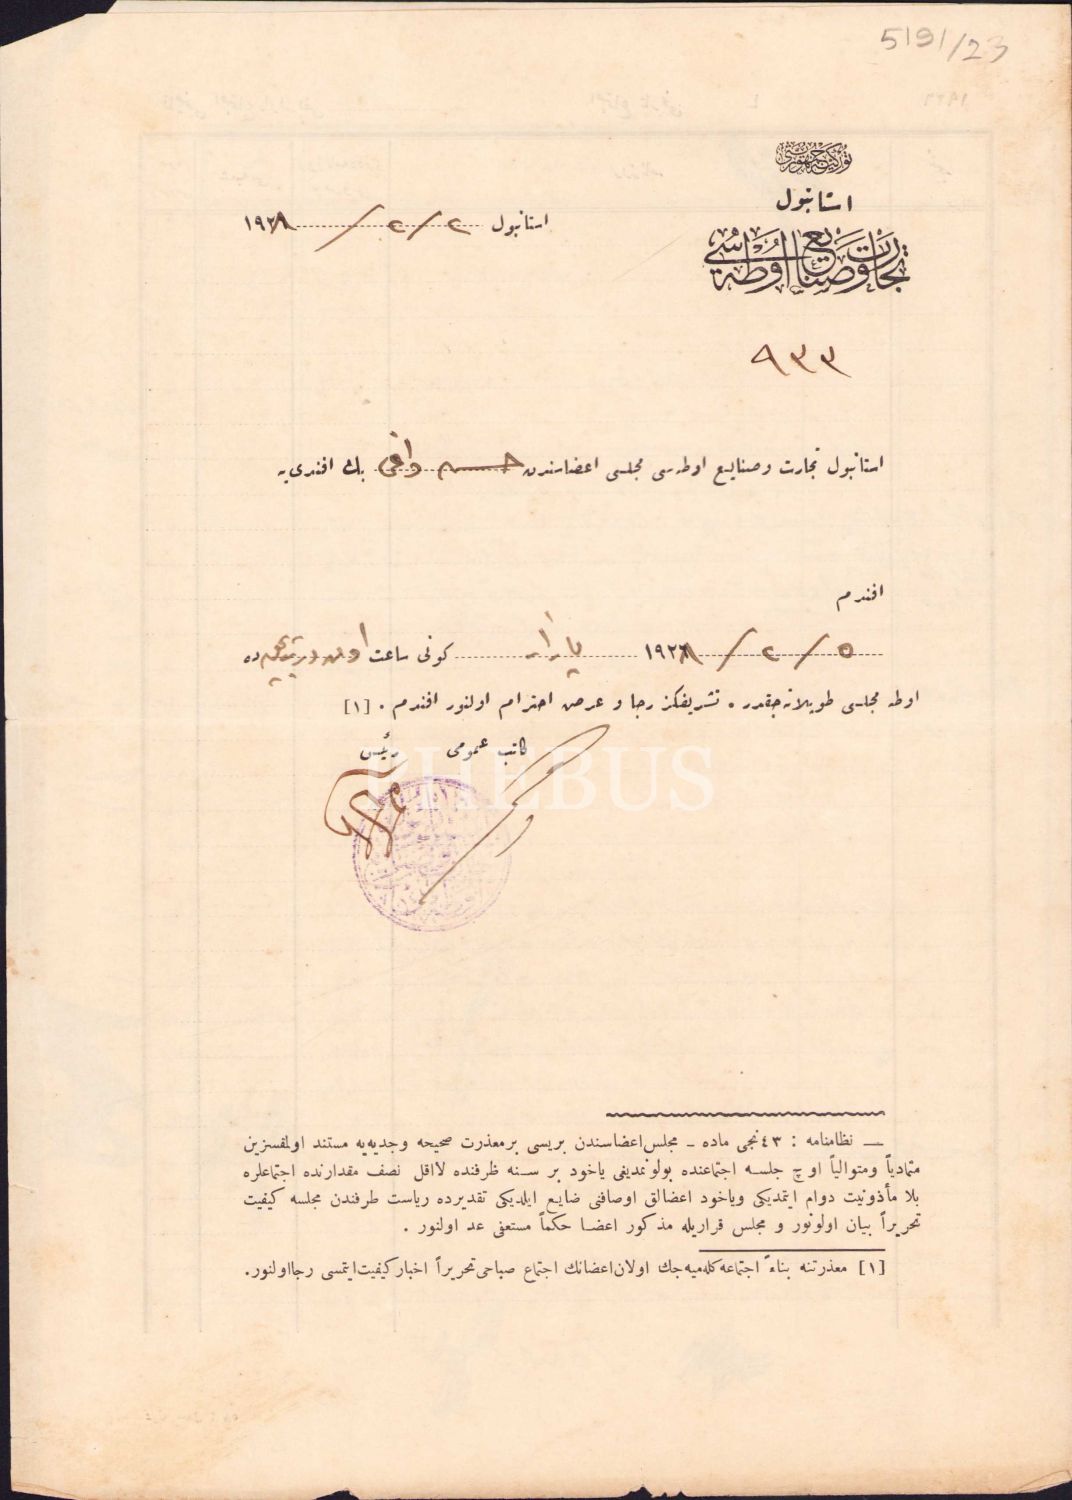 5191/23
توركيه جمهوريتى
استانبول
تجارت و صنايع اوطه سى
استانبول ٢/٢/١٩٢٨
٩٣٣
استانبول تجارت و صنايع اوطه سى مجلسى اعضاسندن حسن بك افندى يه
افندم
٥/٢/١٩٢٨ پازار كونى ساعت اون ده
اوطه مجلسى طوپلانه جقدر . تشريفكز رجا و عرض احترام اولنور افندم . [١]
كاتب عمومى رئيس
PHEBUS
— نظامنامه : ٤٣نجى ماده ـ مجلس اعضاسندن بريسى بر معذرت صحيحه و جديه يه مستند اولمقسزين
متمادياً و متوالياً اوچ جلسه اجتماعنده بولونمديغى ياخود بر سنه ظرفنده لااقل نصف مقدارنده اجتماعلره
بلا مأذونيت دوام ايتمديكى و ياخود اعضالق اوصافنى ضايع ايلديكى تقديرده رياست طرفندن مجلسه كيفيت
تحريراً بيان اولونور و مجلس قراريله مذكور اعضا حكماً مستعفى عد اولنور .
[١] معذرتنه بناءً اجتماعه كله ميه جك اولان اعضانك اجتماع صباحى تحريراً اخبار كيفيت ايتمسى رجا اولنور.